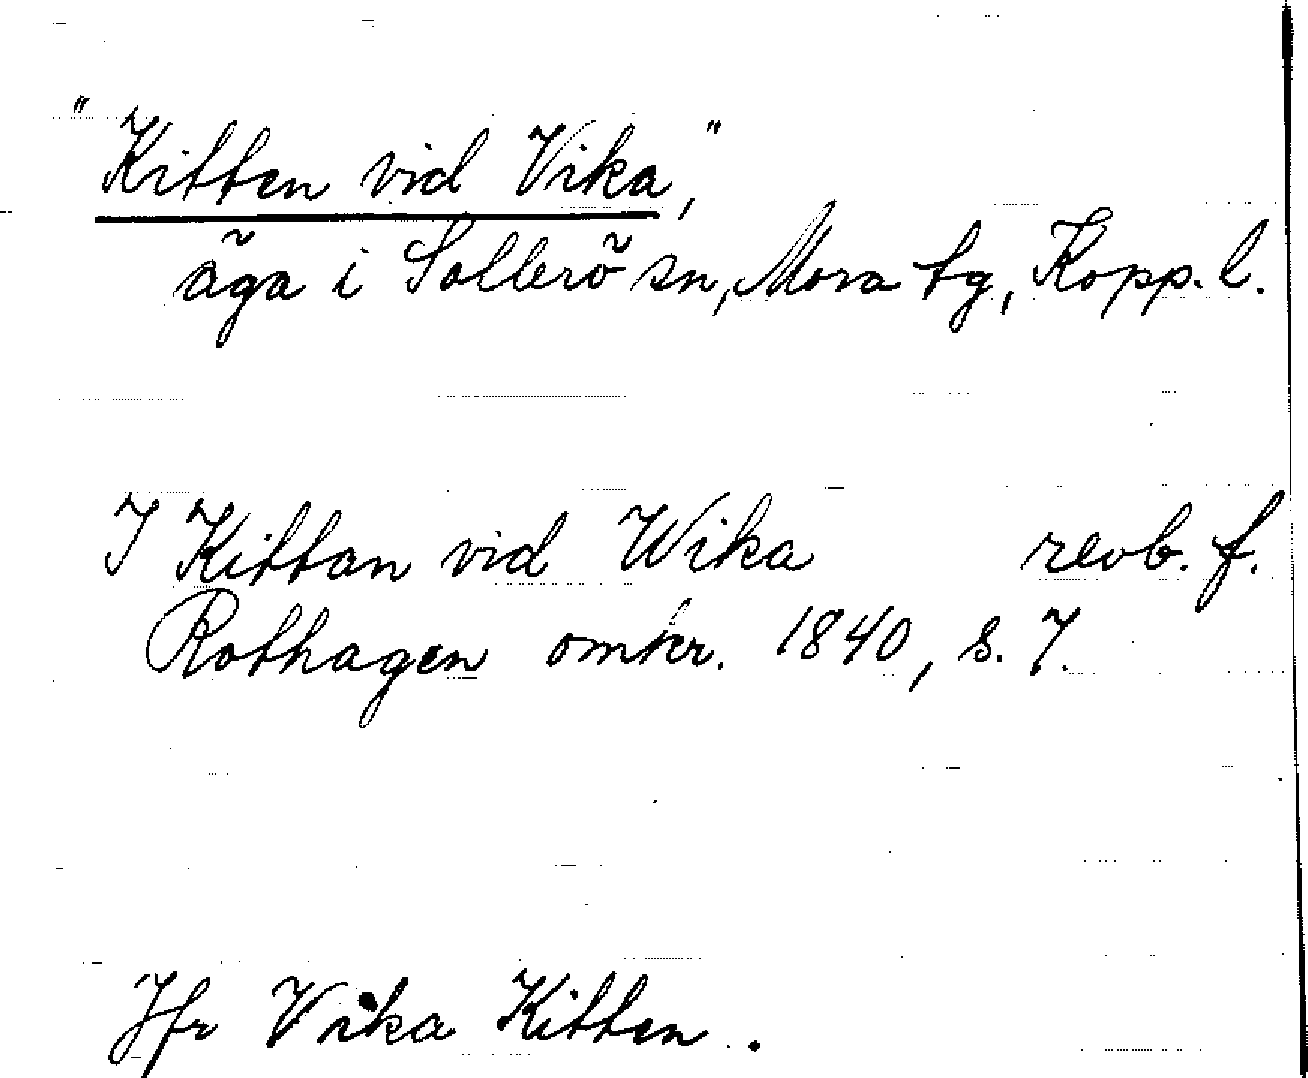 "Kitten vid Vika,"
äga i Sollerö sn, Mora tg, Kopp. l.
I Kittan vid Wika revb. f.
Rothagen omkr. 1840, s. 7.
Jfr Vika Kitten.